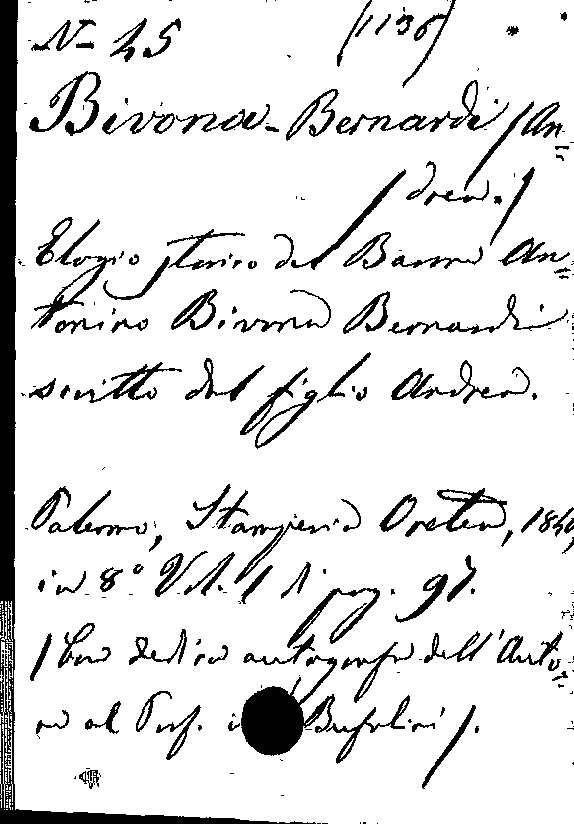 N– 45 (1136)
Bivona-Bernardi (An=
drea.)
Elogio storico del Barone An=
tonino Bivona Bernardi
scritto dal figlio Andrea.
Palermo, Stamperia Oretea, 1840,
in 8° Vol. 1 di pag. 97.
(Con dedica autografa dell'Auto=
re al Prof. Bufalini).